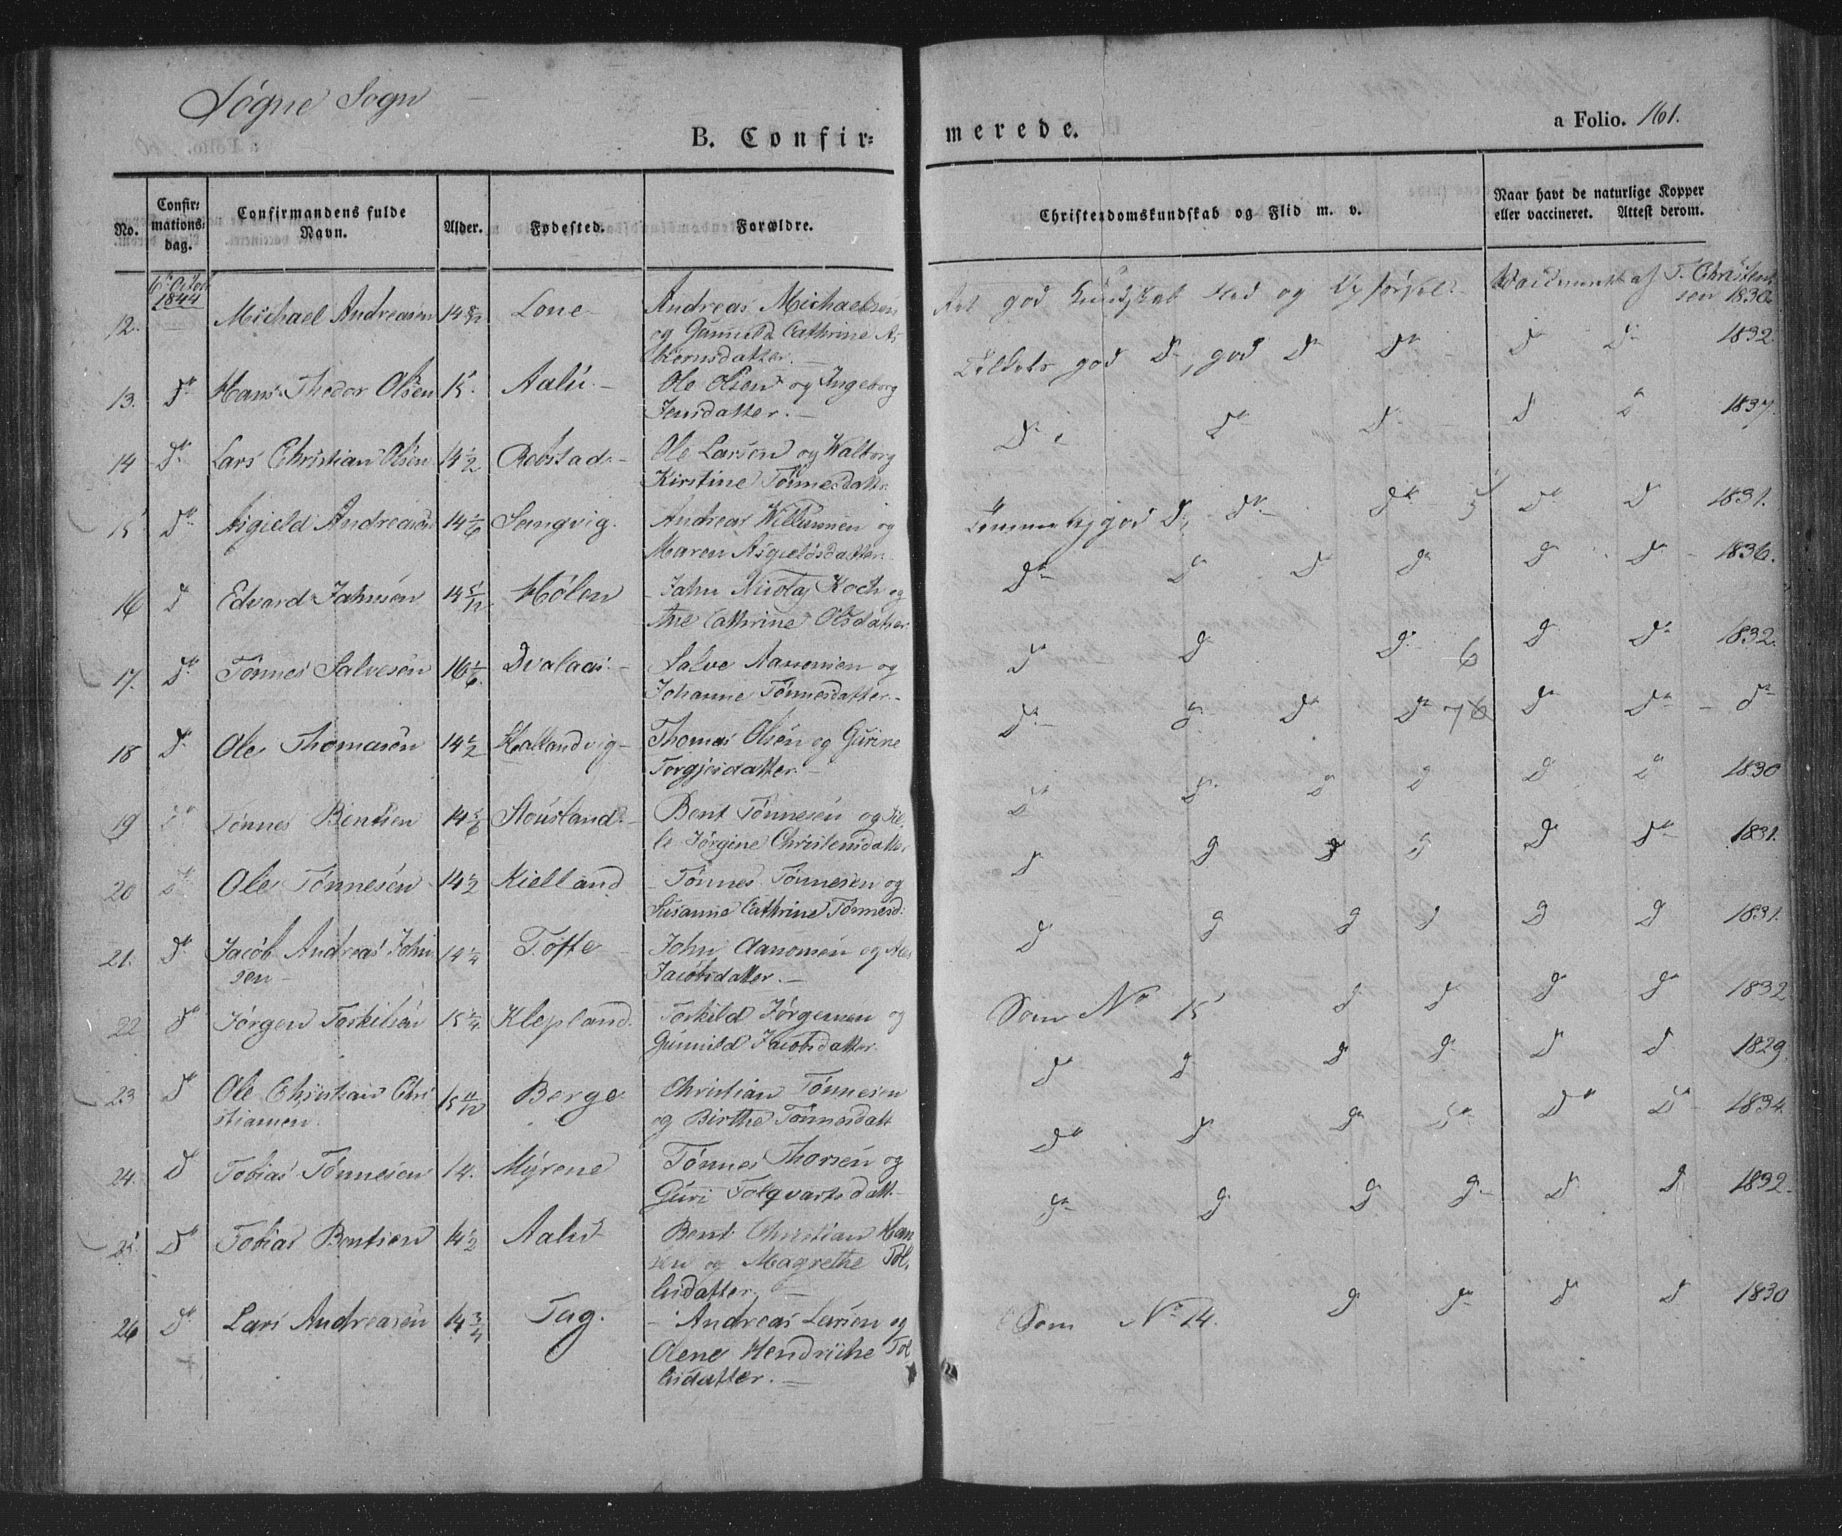 Søgne Sogn
B. Confir= merede.
a Folio. 161.
No. Confir: mations: dag. Confirmandens fulde Navn. Alder. Fødested. Forældre. Christendomskundskab og Flid m. v. Naar havt de naturlige Kopper eller vaccineret. Attest derom.
6te Octob 1844
12. Michael Andreasen 14 Lone Andreas Michaelsen
og Gunild Cathrine As
biørnsdatter. —
god Kundskab Flid og Opførsel Vaccineret af T. Christen
sen 1830
13. Do Hans Thedor Olsen 15. Aalu. — Ole Olsen og Ingeborg
Jensdatter. —
god Do, god Do Do Do Do 1832
14 Do Lars Christian Olsen 14 1/2 Robstad — Ole Larsen og Walborg
Kirstine Tønnesdatter
Do Do Do Do Do 1837.
15 Do Asgield Andreasen 14 1/6 Sangvig. Andreas Willumsen og
Maren Asgieldsdatter.
Temmelig god Do, Do Do Do Do 1831.
16 Do Edvard Jahnsen 14 5/12 Hølen Jahn Nicolay Koch og
Ane Cathrine Olsdatter
Do Do Do Do Do Do 1836.
17. Do Tønnes Salvesen 16 1/6 Dvalaas — Salve Aanonsen og
Johanne Tønnesdatter —
Do Do Do 6 Do Do 1832.
18 Do Ole Thomasen 14 1/2 Hallandvig — Thomas Olsen og Gurine
Torgjersdatter —
Do Do Do Do Do Do Do
19 Do Tønnes Bentsen 14 5/6 Stousland — Bent Tønnesen og Sil,
le Jørgine Christensdatter
Do Do Do Do Do Do 1830
20 Do Ole Tønnesen 14 1/2 Kielland Tønnes Tønnesen og
Susanne Cathrine Tønnesd:
Do Do Do Do Do Do 1831.
21. Do Jacob Andreas John
sen — 14 1/4 Tofte John Aanonsen og
Jacobsdatter. —
Do Do Do Do Do Do 1831.
22 Do Jørgen Torkilsen 15 1/4 Klepland. Torkild Jørgensen og
Gunnild Jacobsdatter
Som No 15 Do Do Do Do 1832
23 Do Ole Christian Chri
stiansen. 15 11/12 Berge Christian Tønnesen
og Birthe Tønnesdatt
Do Do Do Do Do Do 1829.
24. Do Tobias Tønnesen 14. Myrene Tønnes Thorsen og
Guri Tolqvartsdatt —
Do Do Do Do Do Do 1834.
25. Do Tobias Bentsen 14 1/2 Aalu Bent Christian Han
sen og Magrethe Tol,
lisdatter. —
Do Do Do Do Do Do 1832.
26 Do Lars Andreasen 14 3/4 Tag. — Andreas Larsen og
Olene Hendrikke Tol
lisdatter. —
Som No 14. Do Do Do Do 1830